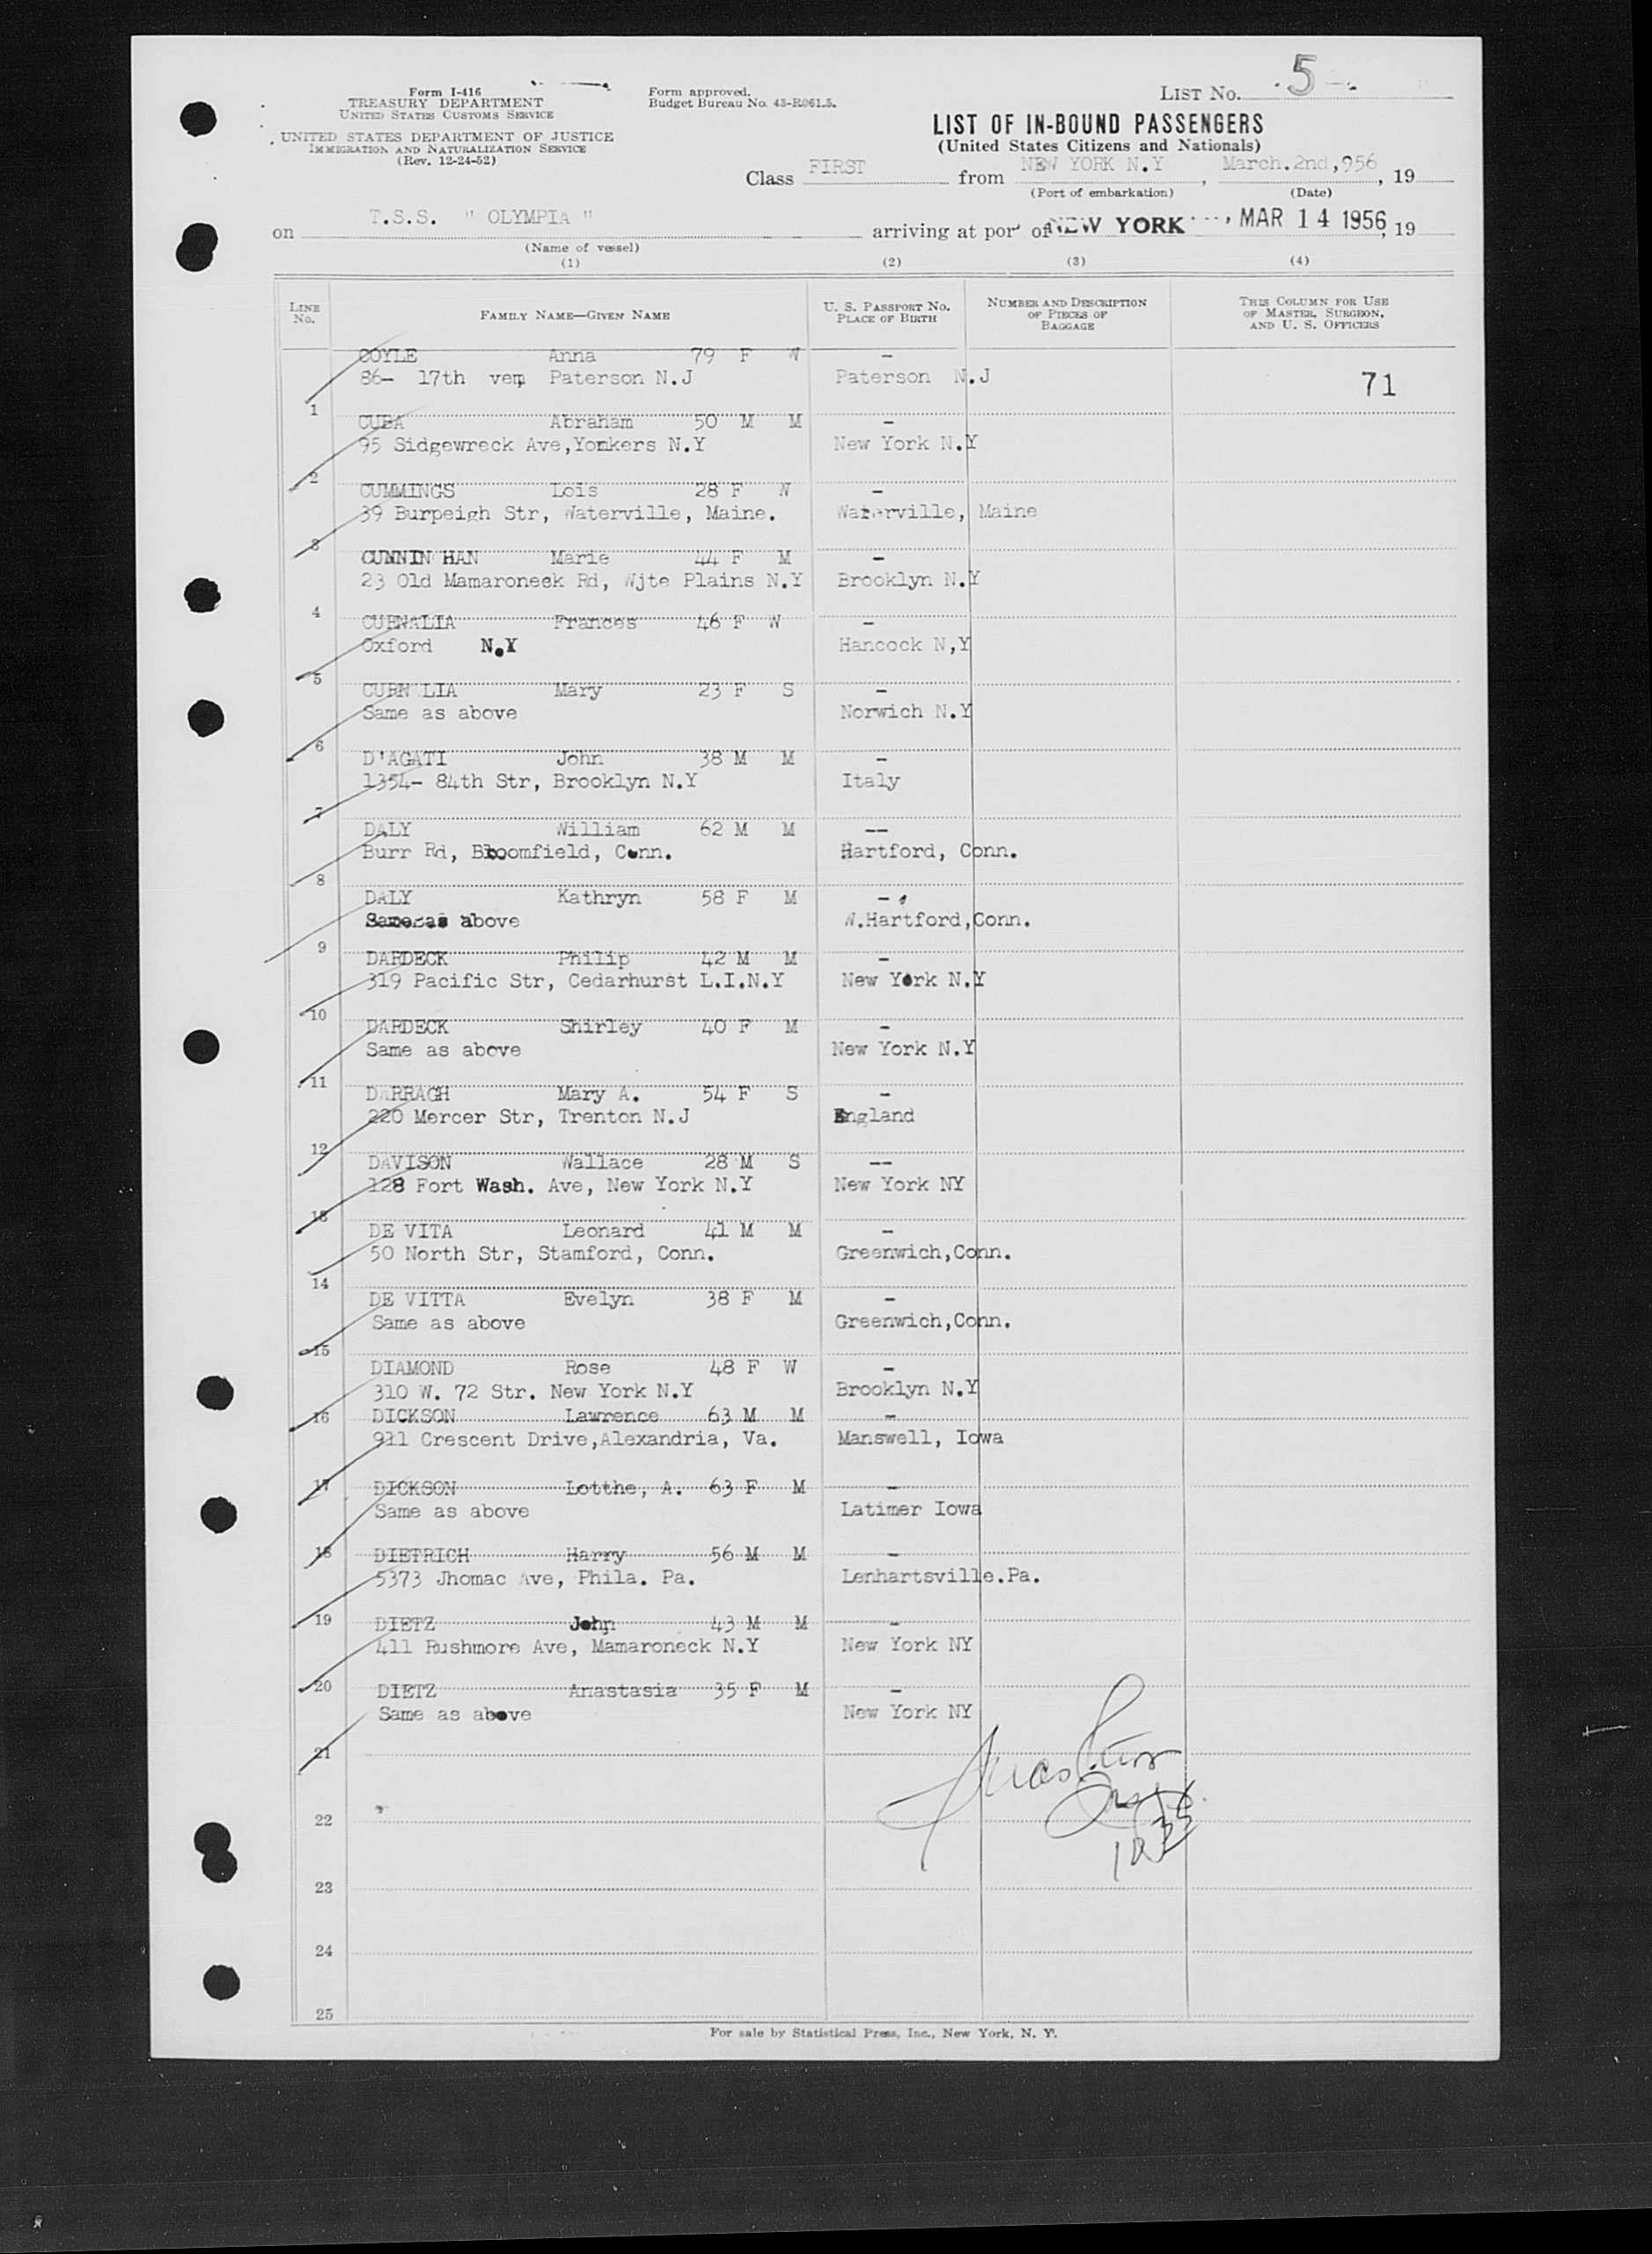 5
Form I-416
TREASURY DEPARTMENT
UNITED STATES CUSTOMS SERVICE
UNITED STATES DEPARTMENT OF JUSTICE
IMMIGRATION AND NATURALIZATION SERVICE
(Rev. 12-24-52)
Form approved.
Budget Bureau No. 43-R061.5.
LIST NO.
LIST OF IN-BOUND PASSENGERS
(United States Citizens and Nationals)
Class FIRST from NEW YORK N.Y , March.2nd,956 , 19
(Port of embarkation) (Date)
on T.S.S. " OLYMPIA " arriving at port of NEW YORK , MAR 14 1956, 19
(Name of vessel)
(1) (2) (3) (4)
LINE No.
FAMILY NAME—GIVEN NAME
U. S. PASSPORT NO. PLACE OF BIRTH
NUMBER AND DESCRIPTION OF PIECES OF BAGGAGE
THIS COLUMN FOR USE OF MASTER, SURGEON, AND U. S. OFFICERS
COYLE Anna 79 F W -
86- 17th Paterson N.J Paterson N.J 71
1
CUBA Abraham 50 M M -
95 Sidgewreck Ave,Yonkers N.Y New York N.Y
2
CUMMINGS Lois 28 F W -
39 Burpeigh Str, Waterville, Maine. Waterville, Maine
3
CUNNIN HAN Marie 44 F M -
23 Old Mamaroneek Rd, Wjte Plains N.Y Brooklyn N.Y
4
CURNALIA Frances 46 F W -
Oxford N.Y Hancock N,Y
5
CURN LIA Mary 23 F S -
Same as above Norwich N.Y
6
D'AGATI John 38 M M -
1354- 84th Str, Brooklyn N.Y Italy
7
DALY William 62 M M --
Burr Rd, Bloomfield, Conn. Hartford, Conn.
8
DALY Kathryn 58 F M -
Same as above W.Hartford,Conn.
9
DARDECK Philip 42 M M -
319 Pacific Str, Cedarhurst L.I.N.Y New York N.Y
10
DARDECK Shirley 40 F M -
Same as above New York N.Y
11
DARRAGH Mary A. 54 F S -
220 Mercer Str, Trenton N.J England
12
DAVISON Wallace 28 M S --
128 Fort Wash. Ave, New York N.Y New York NY
13
DE VITA Leonard 41 M M -
50 North Str, Stamford, Conn. Greenwich,Conn.
14
DE VITTA Evelyn 38 F M -
Same as above Greenwich,Conn.
15
DIAMOND Rose 48 F W -
310 W. 72 Str. New York N.Y Brooklyn N.Y
16
DICKSON Lawrence 63 M M -
911 Crescent Drive,Alexandria, Va. Manswell, Iowa
17
DICKSON Lotthe, A. 63 F M -
Same as above Latimer Iowa
18
DIETRICH Harry 56 M M -
5373 Jhomac Ave, Phila. Pa. Lenhartsville.Pa.
19
DIETZ John 43 M M -
411 Rushmore Ave, Mamaroneck N.Y New York NY
20
DIETZ Anastasia 35 F M -
Same as above New York NY
21
22
23
24
25
For sale by Statistical Press, Inc., New York, N. Y.